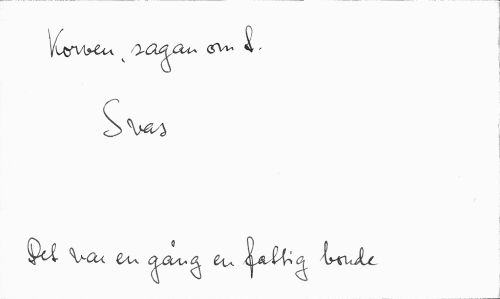 Korven, sagan om d.
Svas
Det var en gång en fattig bonde